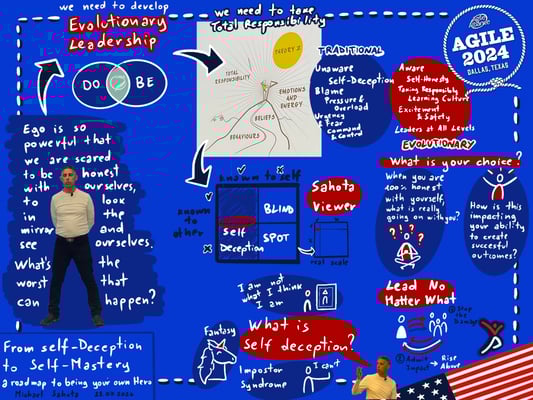 we need to develop
Evolutionary
Leadership
DO
BE
we need to take
Total Responsibility
THEORY X
TOTAL
RESPONSIBILITY
EMOTIONS
AND
ENERGY
BELIEFS
BEHAVIOURS
TRADITIONAL
Unaware
Self-Deception
Blame
Pressure &
Overload
Urgency
& Fear
Command
& Control
Aware
Self-Honesty
Taking Responsibly
Learning Culture
Excitement
& Safety
Leaders at All Levels
EVOLUTIONARY
AGILE
2024
DALLAS, TEXAS
Ego is so
powerful that
we are scared
to be honest
with ourselves,
to look
in the
mirror and
see ourselves.
What's the
worst that
can happen?
known to self
known to
other
BLIND
SPOT
Self
Deception
Sahota
Viewer
real scale
What is your choice?
When you are
100% honest
with yourself,
what is really
going on with you?
? ! ? ?
How is this
impacting
your ability
to create
succesful
outcomes?
I am not
what I think
I am
What is
Self deception?
Fantasy
Impostor
Syndrome
I can't
Lead No
Matter What
① Stop the
Damage
② Admit
Impact
Rise
Above
From self-Deception
to Self-Mastery
a roadmap to being your own Hero
Michael Sahota